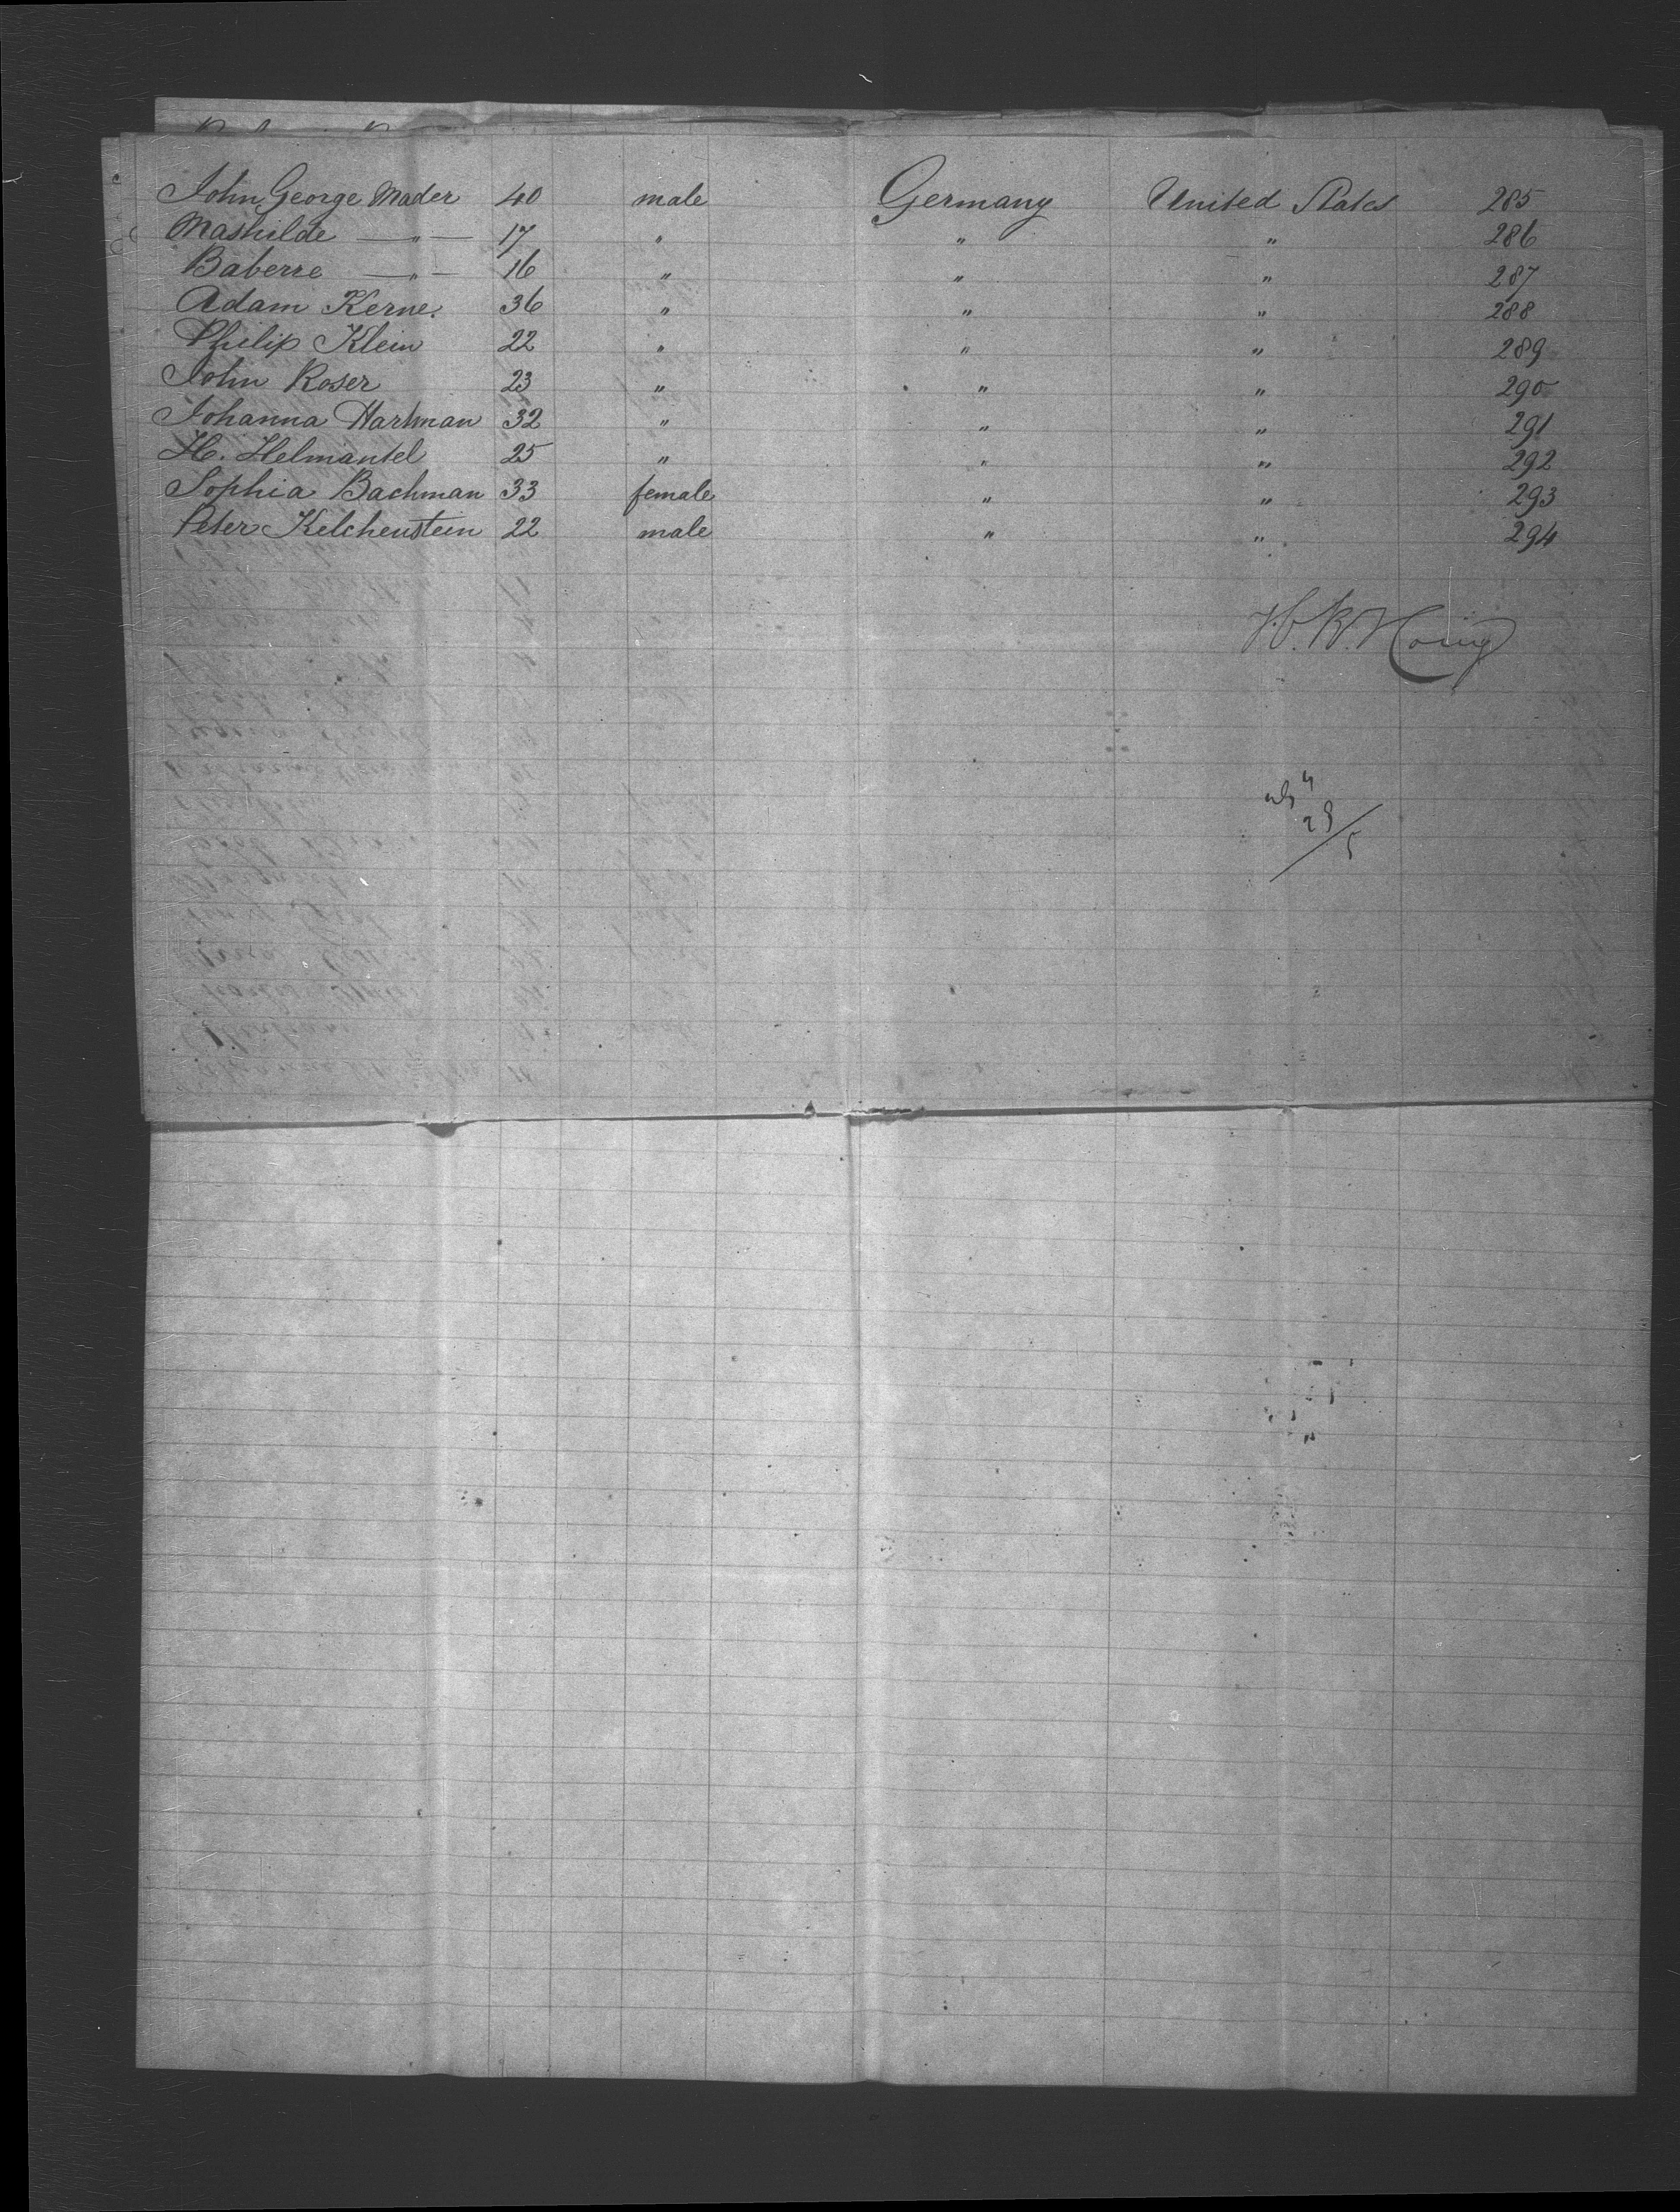 John George Mader 40 male Germany United States 285
Mashilde —"— 17 " " " 286
Baberre —"— 16 " " " 287
Adam Kerne. 36 " " " 288
Philip Klein 22 " " " 289
John Roser 23 " " " 290
Johanna Hartman 32 " " " 291
H. Helmantel 25 " " " 292
Sophia Bachman 33 female " " 293
Peter Kelchenstein 22 male " " 294